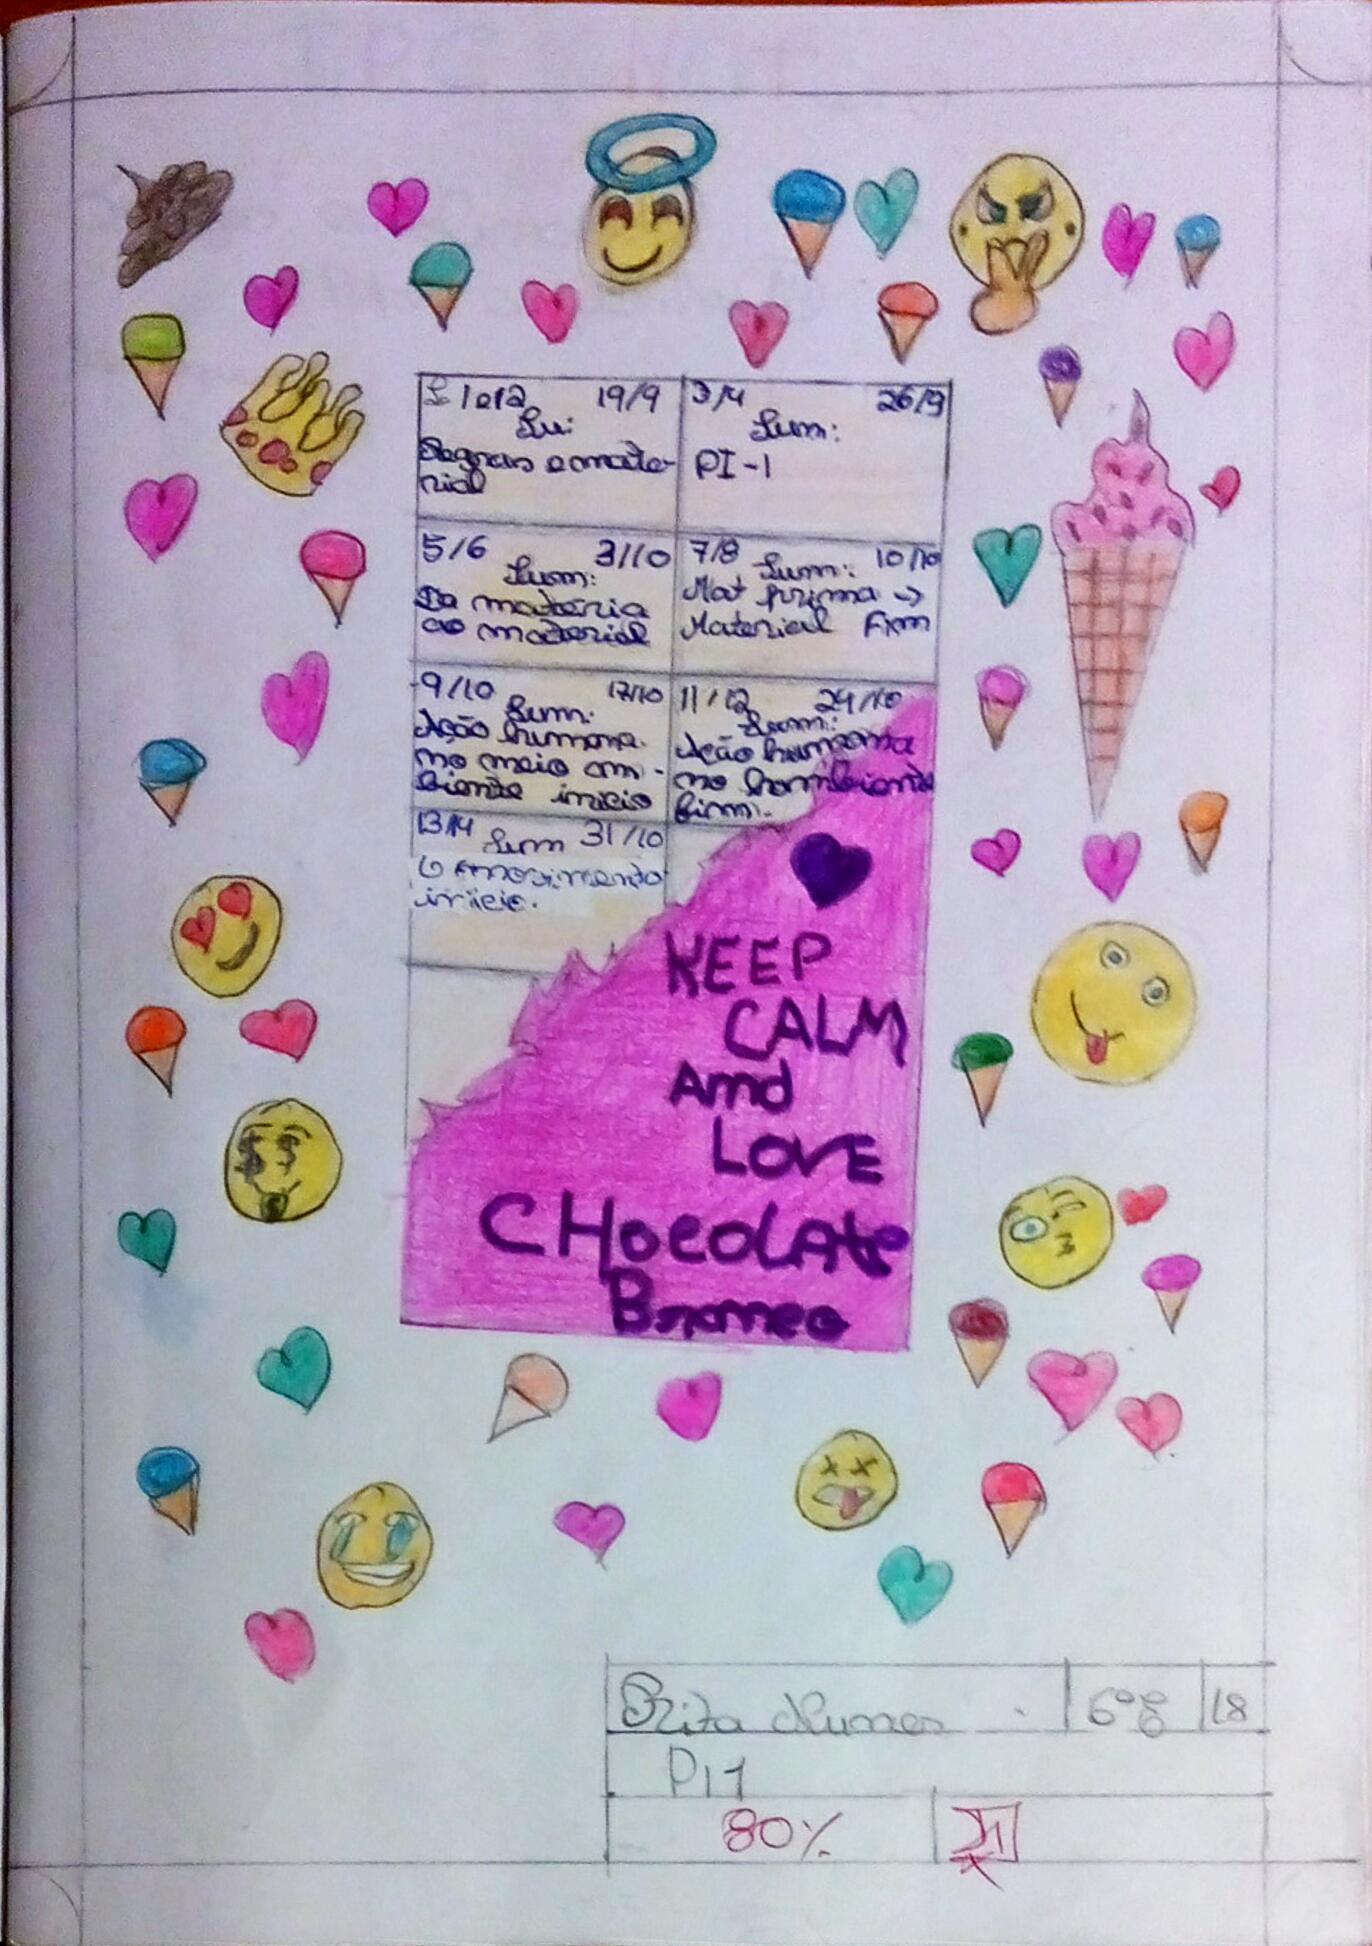 L 1e2 19/9
Su:
Regras e mate-
rial
3/4 26/9
Sum:
PI-1
5/6 3/10
Sum:
Da matéria
ao material
7/8 Sum: 10/10
Mat prima ->
Material Fim
9/10 17/10
Sum:
Ação humana
no meio am-
biente inicio
11/12 24/10
Sum:
Ação humana
no
fim.
13/14 Sum 31/10
O movimento
inicio.
KEEP
CALM
And
LOVE
CHocoLAte
Branco
Rita Nunes 6º 18
PI1
80%